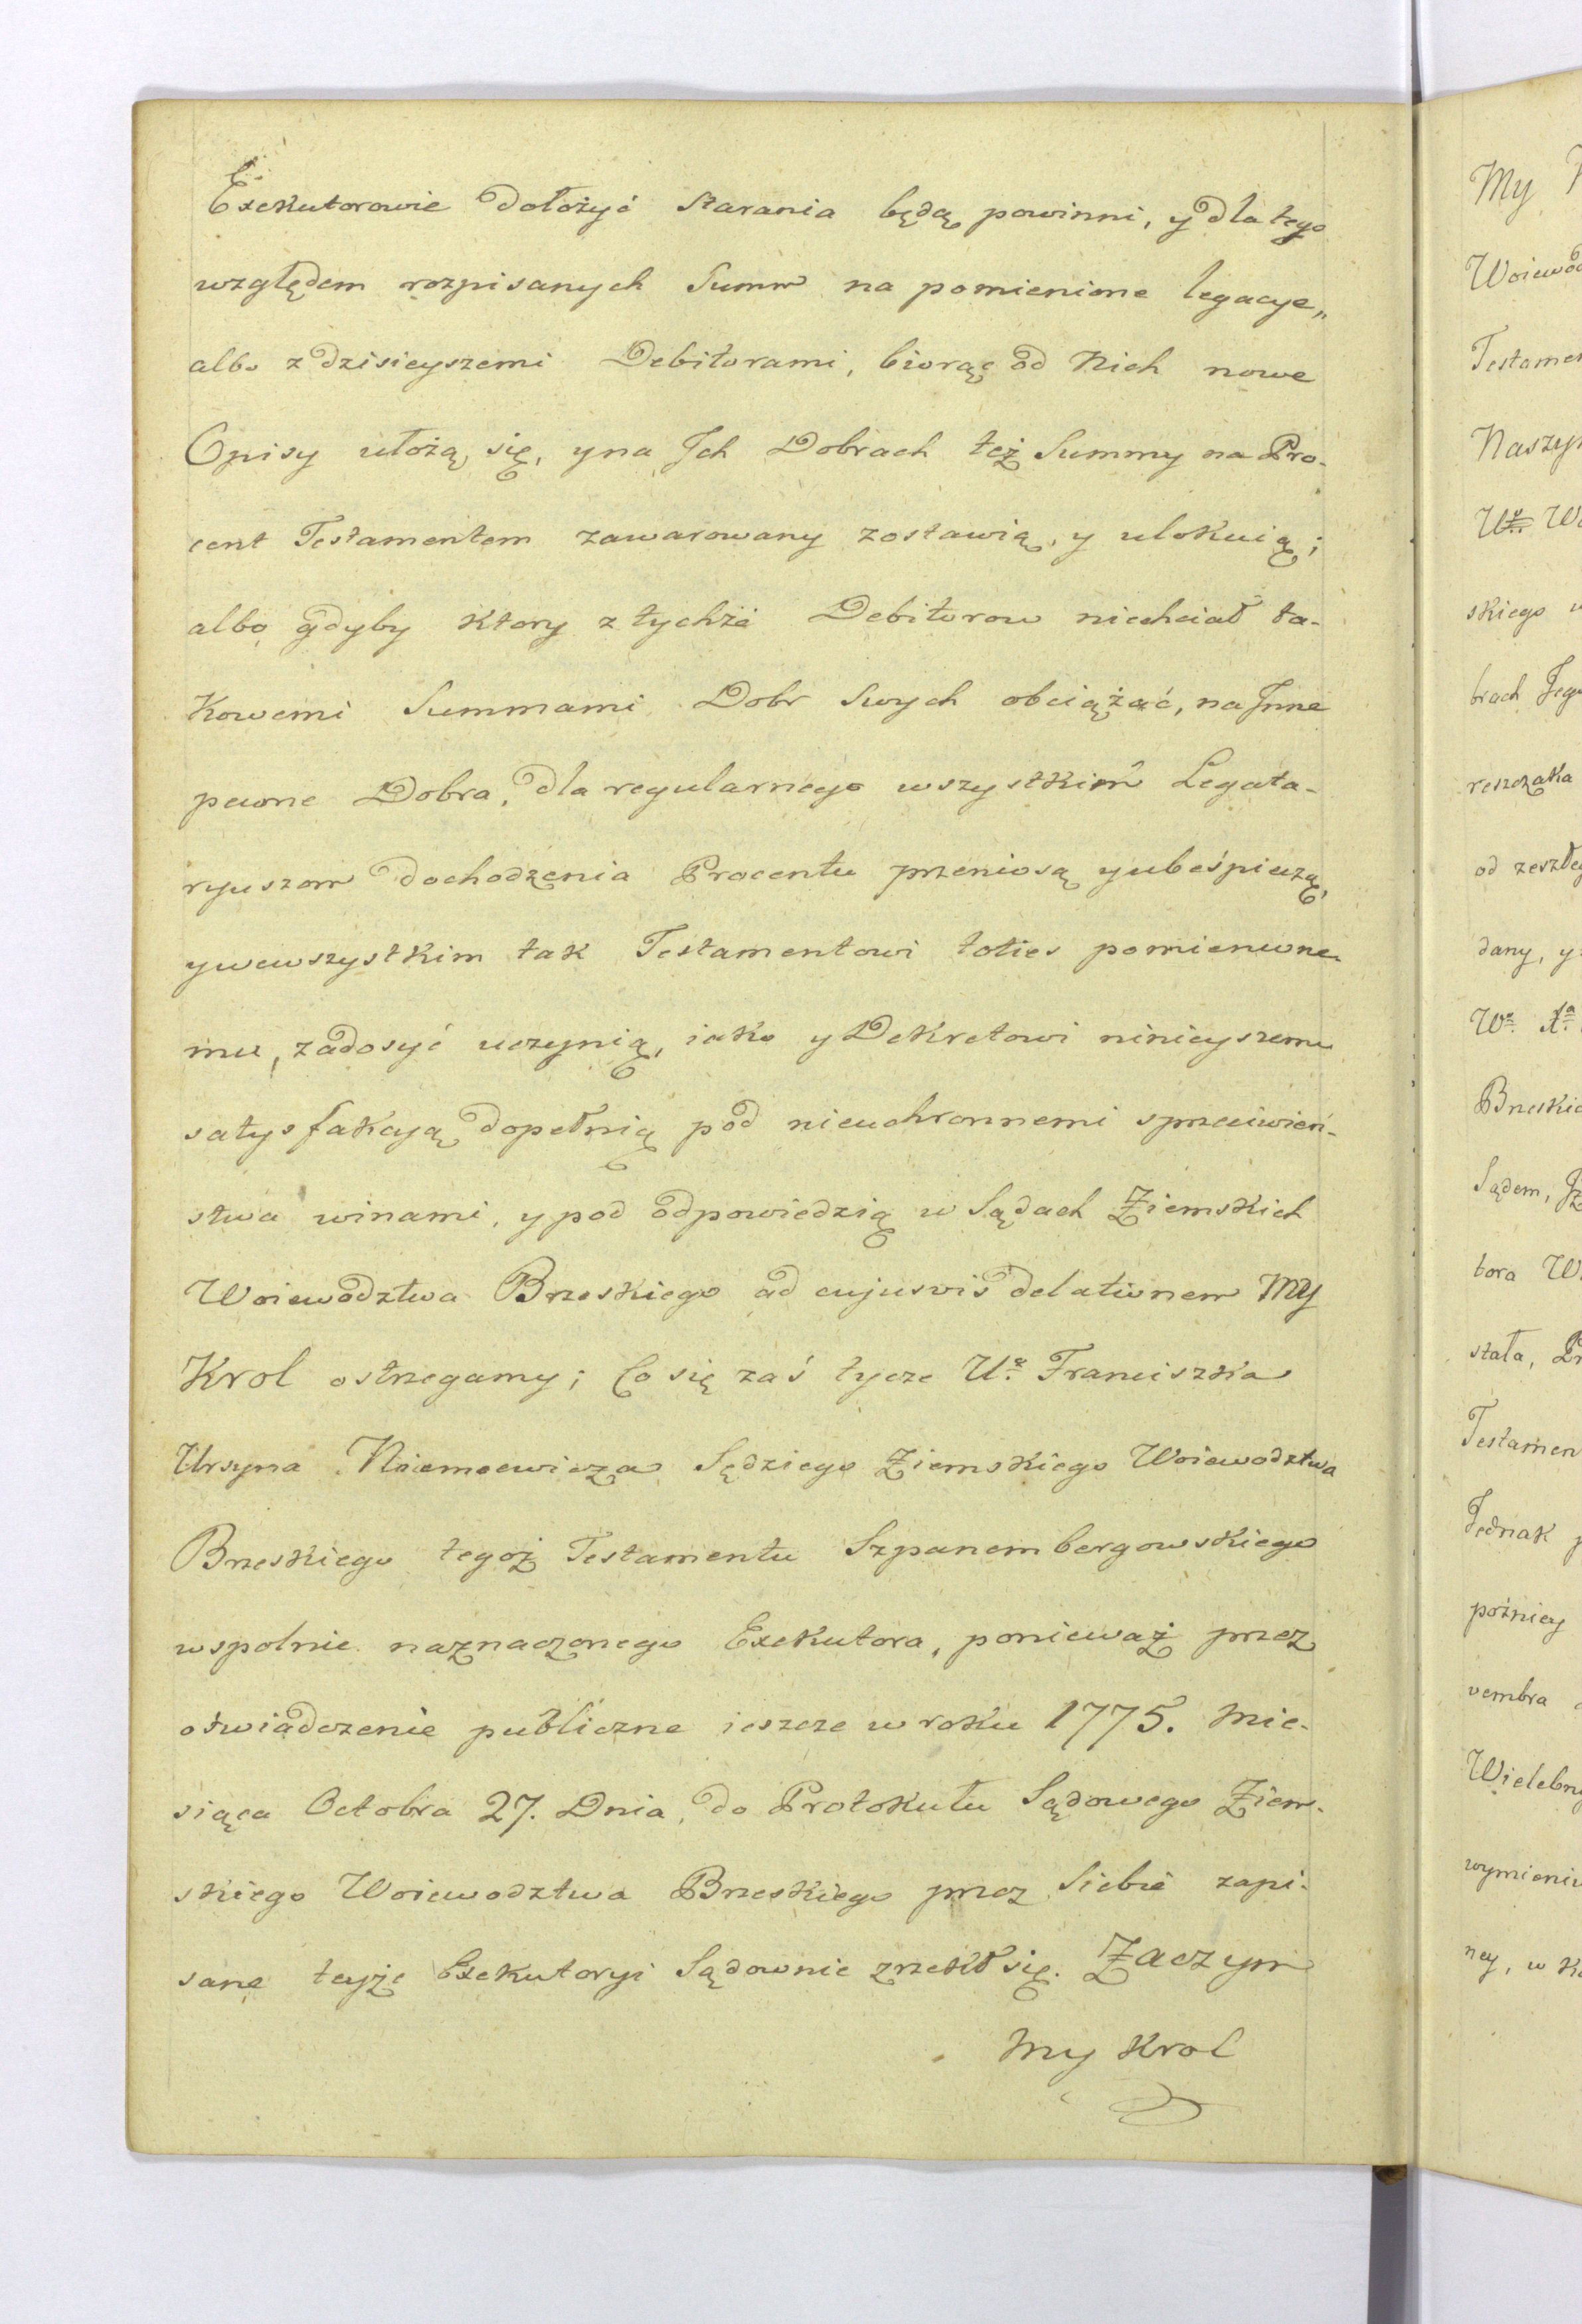 Exekutorowie dołożyć starania będą powinni, y dla tego
względem rozpisanych Summ na pomienione legacye,,
albo z dzisieyszemi Debitorami, biorąc od Nich nowe
Opisy ułożą się, y na Ich Dobrach też Summy na Pro-
cent Testamentem zawarowany zostawią, y ulokuią;
albo gdyby ktory z tychże Debitorow niechciał ta-
kowemi Summami Dobr Swych obciążać, na Inne
pewne Dobra, dla regularnego wszystkim Legata-
ryuszom dochodzenia Procentu przeniosą y ubeśpieczą,
y wewszystkim tak Testamentowi toties pomienione-
mu, zadosyć uczynią, iako y Dekretowi ninieyszemu
satysfakcyą dopełnią pod nieuchronnemi sprzeciwień-
stwa winami, y pod odpowiedzią w Sądach Ziemskich
Woiewodztwa Brzeskiego ad cujusvis delationem My
Krol ostrzegamy; Co się zaś tycze Uo. Franciszka
Ursyna Niemcewicza Sędziego Ziemskiego Woiewodztwa
Brzeskiego tegoż Testamentu Szpanembergowskiego
wspolnie naznaczonego Exekutora, ponieważ przez
oświadczenie publiczne ieszcze w roku 1775. Mie-
siąca Octobra 27. Dnia, do Protokułu Sądowego Ziem-
skiego Woiewodztwa Brzeskiego przez Siebie zapi-
sane teyże Exekutoryi Sądownie zrzekł się. Zaczym
My Krol
My
Woiewod
Testamen
Naszy
skiego w
brach Jego
reszczaka
od zeszłe
dany, y
Brzeskie
Sądem,
tora W
stała, Pr
Testamen
Jednak p
poźniey
vembra
Wielebny
wymienio
ney, w K